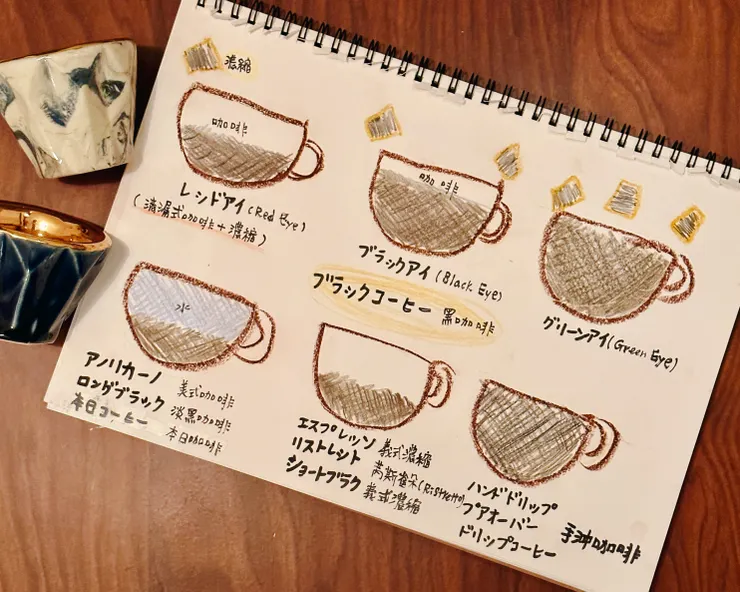 濃縮
咖啡
レッドアイ (Red Eye)
(滴漏式咖啡+濃縮)
咖啡
ブラックアイ (Black Eye)
グリーンアイ (Green Eye)
ブラックコーヒー 黑咖啡
水
アメリカーノ 美式咖啡
ロングブラック 淡黑咖啡
本日コーヒー 本日咖啡
エスプレッソ 義式濃縮
リストレット 芮斯崔朵(Ristretto)
ショートブラク 義式濃縮
ハンドドリップ
プアオーバー
ドリップコーヒー
手沖咖啡